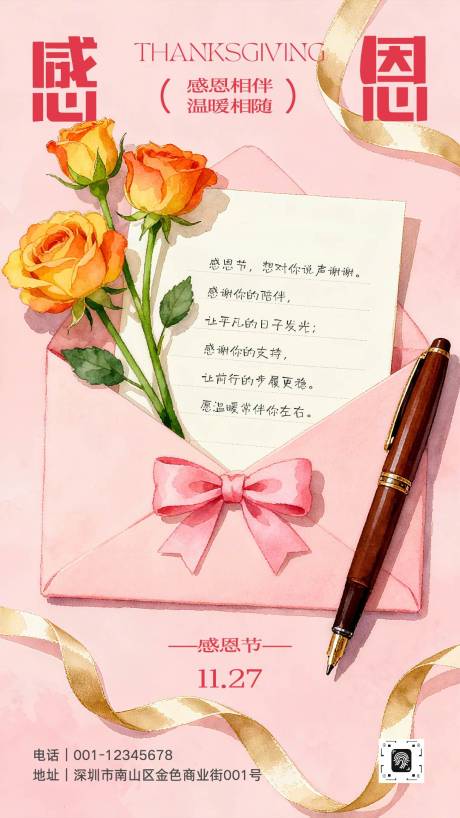 感恩
THANKSGIVING
（感恩相伴
温暖相随）
感恩节，想对你说声谢谢。
感谢你的陪伴，
让平凡的日子发光；
感谢你的支持，
让前行的步履更稳。
愿温暖常伴你左右。
—感恩节—
11.27
电话｜001-12345678
地址｜深圳市南山区金色商业街001号